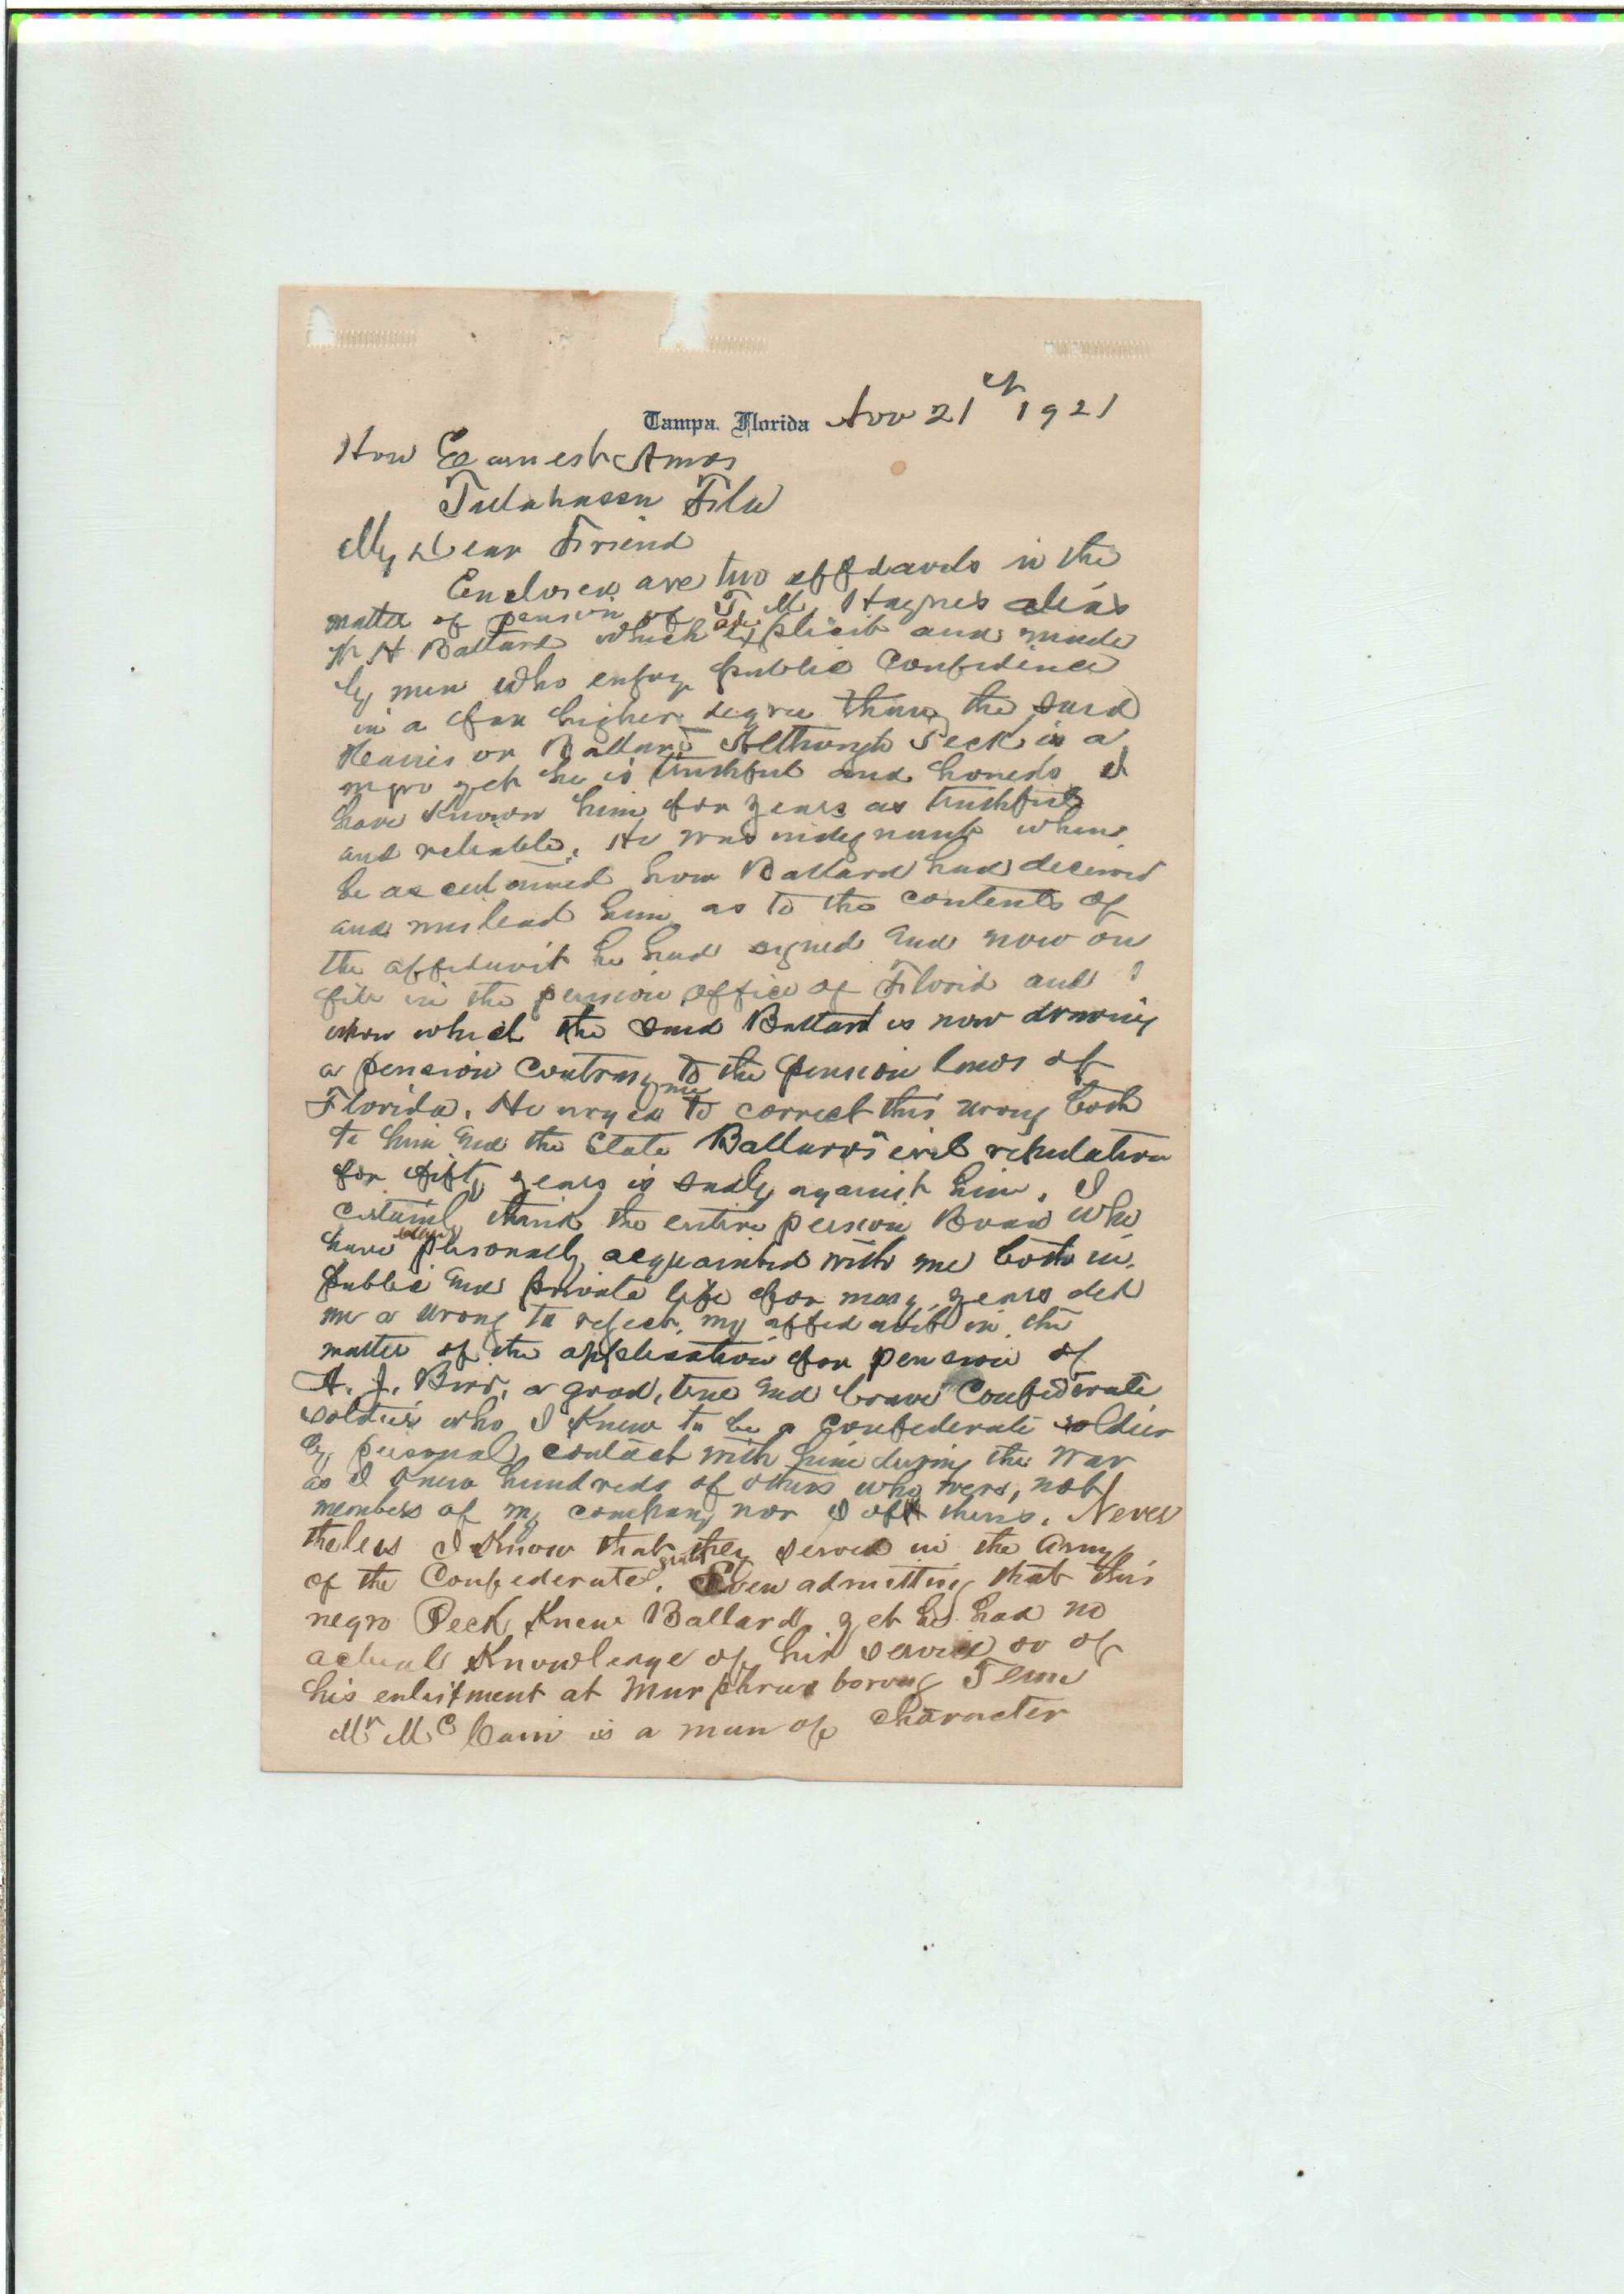 Tampa, Florida Nov 21st 1921
Hon Earnest Amos
Tallahassee Fla
My Dear Friend
Enclosed are two affidavids in the
matter of pension of T. M. Haynes alias
W H Ballard which are explicit and made
by men who enjoy public confidence
in a far higher degree than the said
or Ballard Although Peck is a
negro yet he is truthful and honest I
have known him for years as truthful
and reliable. He was indignant when
he ascertained how Ballard had deceived
and mislead him as to the contents of
the affidavit he had signed and now on
file in the pension office of Florida and
upon which the said Ballard is now drawing
a pension contrary to the pension laws of
Florida. He urged me to correct this wrong both
to him and the State Ballard's evil reputation
for fifty years is sadly against him. I
certainly think the entire pension Board who
have been personally acquainted with me both in
public and private life for many years did
me a wrong to reject my affidavit in the
matter of the application for pension of
A. J. Bird, a good, true and brave Confederate
soldier who I knew to be a confederate soldier
by personal contact with him during the war
as I knew hundreds of others who were, not
members of my company nor I of theirs. Never
theless I know that they served in the Army
of the Confederate States. Even admitting that this
negro Peck knew Ballard yet he had no
actual knowledge of his service or of
his enlistment at Murphrusborough Tenn
Mr McCain is a man of character